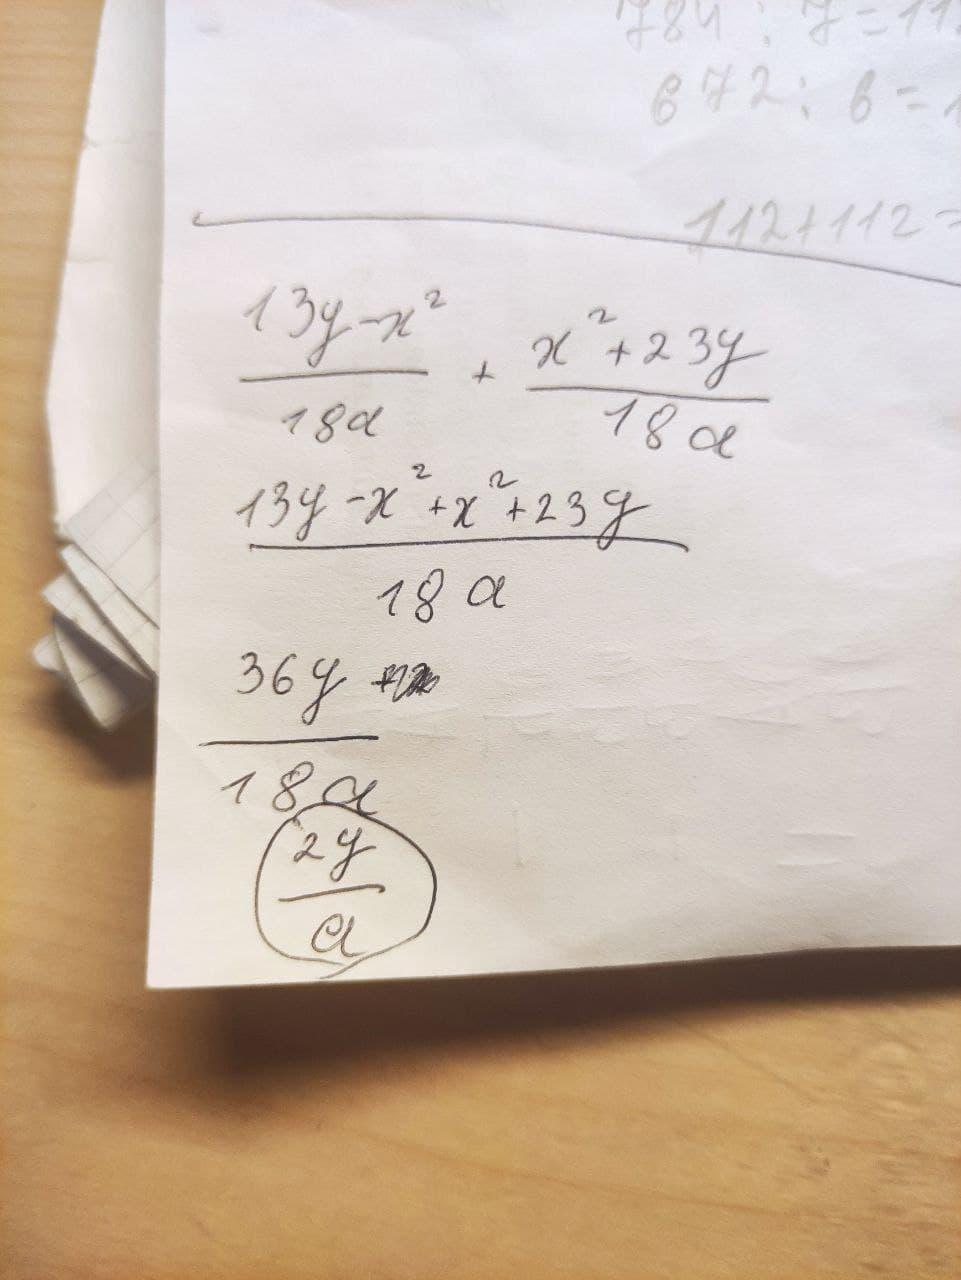 784 : 7 = 11
672 : 6 = 1
112 + 112 =
13y - x² / 18a + x² + 23y / 18a
13y - x² + x² + 23y / 18a
36y / 18a
2y / a